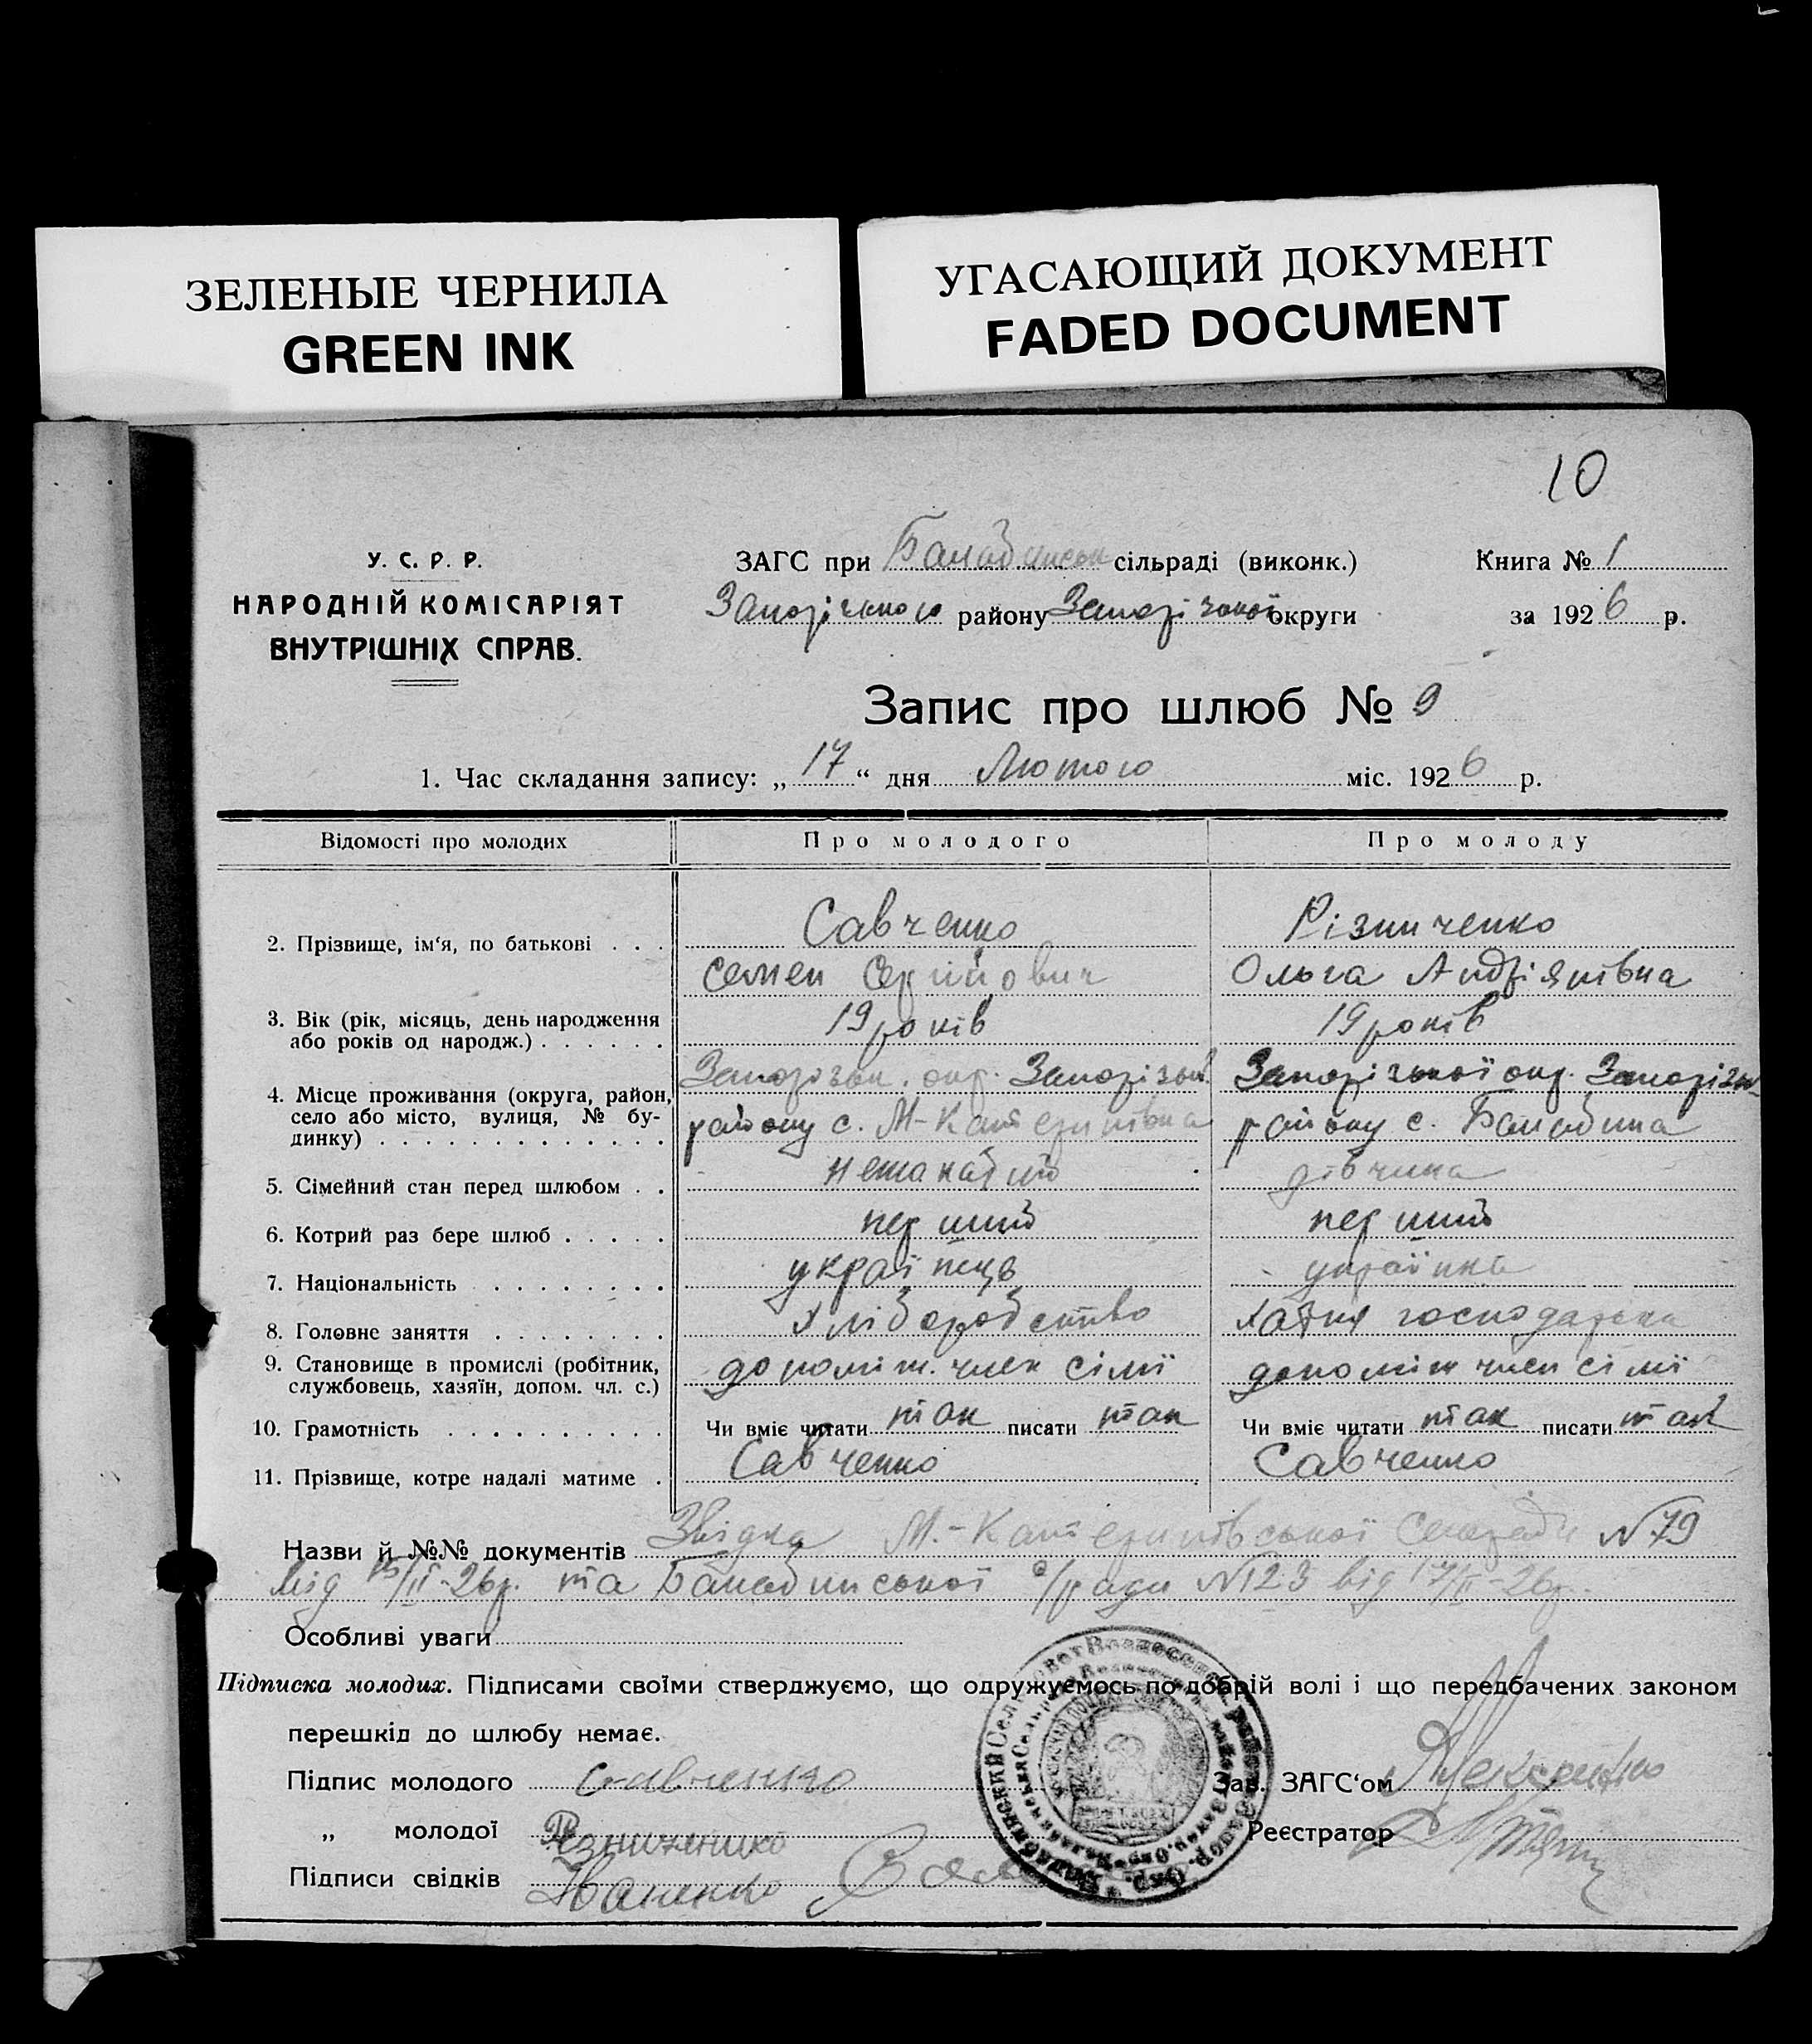 ЗЕЛЕНЫЕ ЧЕРНИЛА
GREEN INK
УГАСАЮЩИЙ ДОКУМЕНТ
FADED DOCUMENT
10
У. С. Р. Р.
НАРОДНІЙ КОМІСАРІЯТ
ВНУТРІШНІХ СПРАВ.
ЗАГС при Балабинськ сільраді (виконк.)
Запорізького району Запорізької округи
Книга № 1
за 1926 р.
Запис про шлюб № 9
1. Час складання запису: „17“ дня Лютого міс. 1926 р.
Відомості про молодих Про молодого Про молоду
2. Прізвище, ім‘я, по батькові . . . Савченко Різниченко
Семен Сергійович Ольга Андріянівна
3. Вік (рік, місяць, день народження
або років од народж.) . . . . . . 19 років 19 років
Запорізьк. окр. Запорізьк. Запорізької окр. Запорізьк
4. Місце проживання (округа, район,
село або місто, вулиця, № бу-
динку) . . . . . . . . . . . . . району с. М-Катеринівка району с. Балабина
5. Сімейний стан перед шлюбом . . нежонатий дівчина
6. Котрий раз бере шлюб . . . . . перший перший
7. Національність . . . . . . . . українець українка
8. Головне заняття . . . . . . . . хліборобство хатня господарка
9. Становище в промислі (робітник,
службовець, хазяїн, допом. чл. с.) допоміж. член сімї допоміж член сімї
10. Грамотність . . . . . . . . . . Чи вміє читати так писати так Чи вміє читати так писати так
11. Прізвище, котре надалі матиме . Савченко Савченко
Назви й №№ документів Звідка М.-Катеринівської Сельради N 79
від 15/II-26р. та Балабинської с/ради N 123 від 17/II-26р.
Особливі уваги
Підписка молодих. Підписами своїми стверджуємо, що одружуємось по добрій волі і що передбачених законом
перешкід до шлюбу немає.
Підпис молодого Савченко
„ молодої Різниченко
Підписи свідків Іваненко
Зав. ЗАГС‘ом
Реєстратор